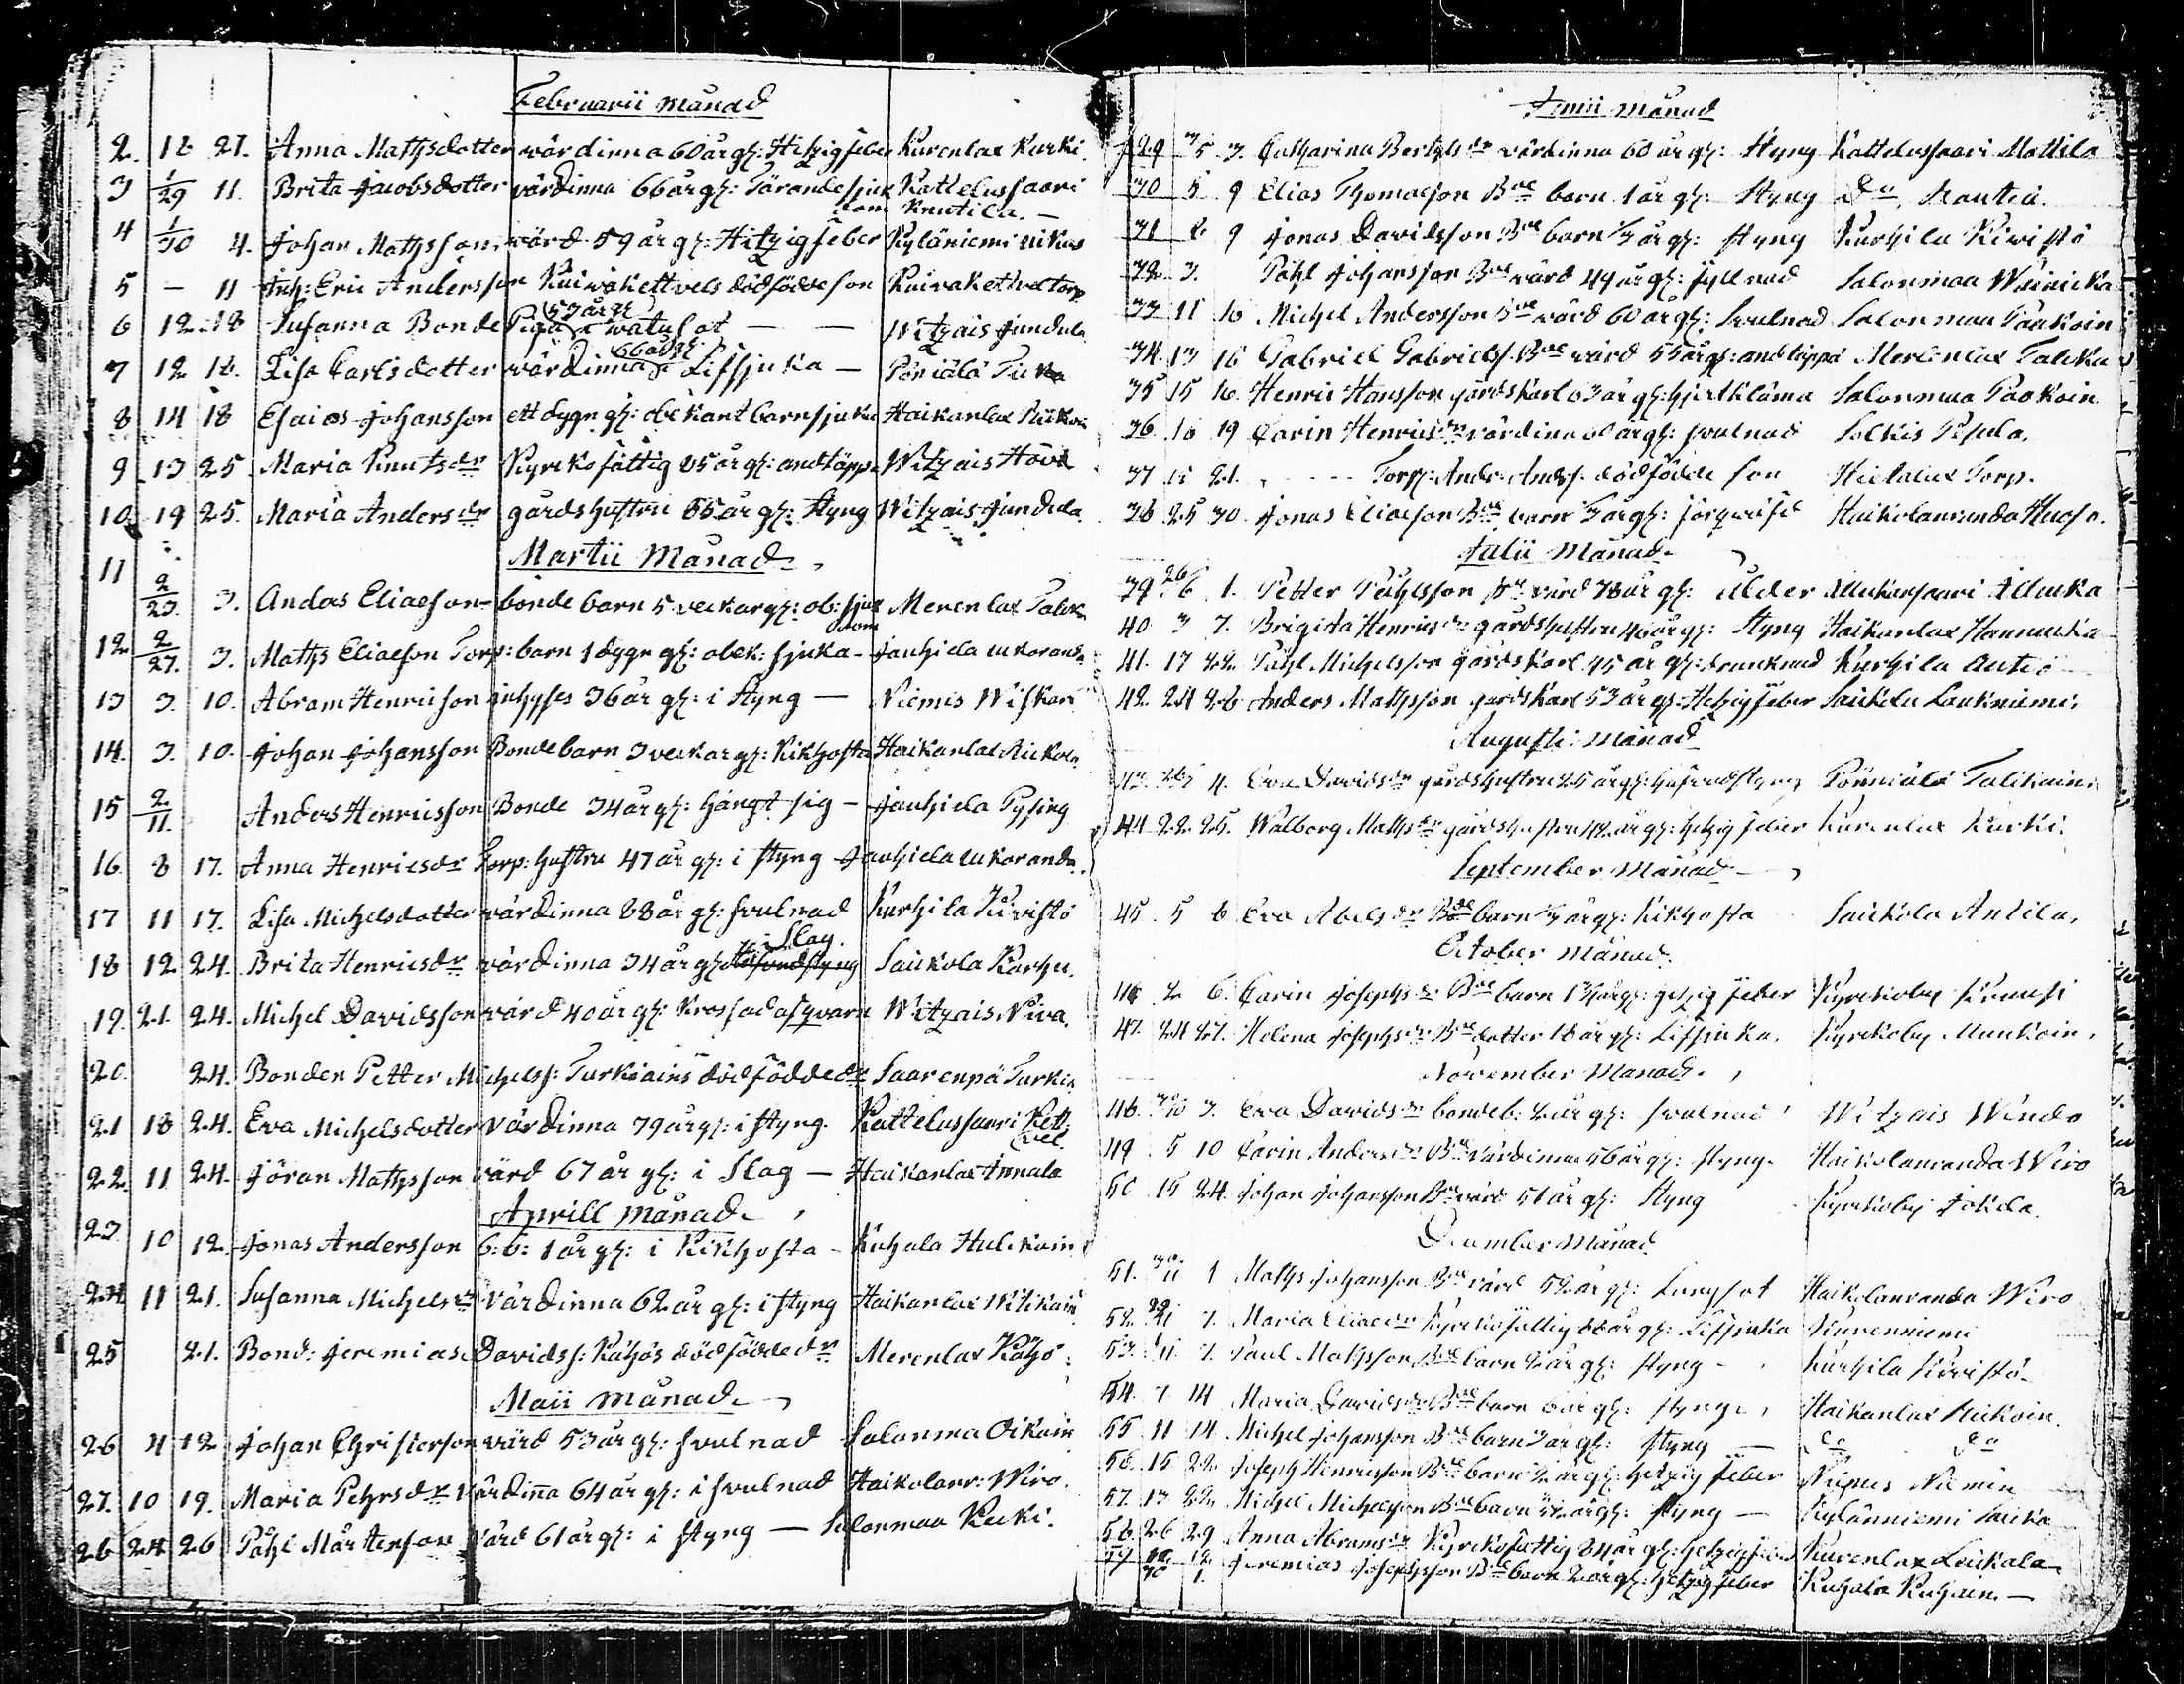 Februarii månad
2. 18 27. Anna Mathsdotter värdinna 60 år gl: Hitzigfeber Kurenlax Kurki
3 1/29 11. Brita Jacobsdotter värdinna 66 år gl: Tärande sjuk Kattelussaari
dom Knutila. —
4 1/30 4. Johan Mathsson, värd 59 år gl: Hitzigfeber Kyläniemi
5 — 11 Inh: Eric Andersson dödfödde son
53 år gl
6 12 18 Susanna Bonde Piga i watusot — — Witzais Jundula
66 år gl
7 12 18. Lisa Carlsdotter wärdinna Lifsjuka — Pöniälä
8 14 18 Esaias Johansson ett dygn gl: obekant barnsjuka Haikanlax
9 13 25 Maria Knutsdr Kyrkofattig 85 år gl: andtäppa Witzais Hovi
10 19 25. Maria Andersdr gårdshustru 65 år gl: Styng Witzais Jundula.
Martii Månad
11 2/23. 3. Anders Eliaeson bonde barn 5 veckor gl: ob: sjuk Merenlax
dom
12 2/27. 3. Maths Eliaeson Torp: barn 1 dygn gl: obek: sjuka — Jauhiala
13 3. 10. Abram Henricson inhyses 36 år gl: i Styng — Niemis Wiskari
14. 3. 10. Johan Johansson Bondebarn 3 veckor gl: Kikhosta Haikanlax
15 2/11. Anders Henricsson Bonde 34 år gl: hängt sig — Jauhiala
16. 8 17. Anna Henricsdr Torp: hustru 47 år gl: i styng Jauhiala
17 11 17. Lisa Michelsdotter värdinna 88 år gl: svulnad Kurhila Kivistö
i Slag.
18 12 24. Brita Henricsdr värdinna 34 år gl: Saukola Karhu.
19. 21. 24. Michel Davidsson värd 40 år gl: Krossad af qvarn Witzais Niva.
20. 24. Bonden Petter Michelss: Turkiains dödfödde dr Saarenpä Turkia
21 18 24. Eva Michelsdotter Värdinna 79 år gl: i styng. Kattelussaari Kett
vel
22. 11 24. Jöran Mathsson värd 67 år gl: i Slag — Haikanlax Annala
Aprill månad
23 10 12. Jonas Andersson b:b: 1 år gl: i Kikhosta — Kuhala Hulikoin
24 11 21. Susanna Michelsdr Värdinna 62 år gl: i styng Haikanlax
25 21. Bond: Jeremias Davidss: Kähös dödfödde dr Merenlax Kähö
Maii månad
26 4 12 Johan Christerson värd 53 år gl: svulnad Salonmaa Oikoin
27. 10 19. Maria Pehrsdr Värdinna 64 år gl: i svulnad Haikolanr: Wiro.
28 24 26 Påhl Mårtenson Värd 61 år gl: i styng — Salonmaa
Junii månad
29 3. Catharina Bertilsdr värdinna 60 år gl: Styng Kattelussaari Mattila
30 5 9 Elias Thomaeson Bde barn 1 år gl: Styng Do,
31 8 9 Jonas Davidsson Bde barn 3 år gl: styng Kurhila Kivistö
32. 3. Påhl Johansson Bde värd 49 år gl: fyllnad Salonmaa
33 11 16 Michel Andersson Bde värd 60 år gl: Svulnad Salonmaa Paakoin
34. 13 16 Gabriel Gabrielss. Bde värd 55 år gl: andtäppa Merenlax
35 15 16. Henric Hansson gårdskarl 63 år gl: Salonmaa Paakoin
36. 18 19 Carin Henricsdr värdinna 60 år gl: svulnad Solkis
37 18 21. Torp: Andr: Anders. dödfödde son Hietalax Torp.
38 25 30. Jonas Eliaeson Bde barn 3 år gl: Haikolanranda
Julii månad
39 26/6 1. Petter Påhlsson värd 78 år gl: ålder
40 3 7. Brigitta Henricsdr gårdshustru 46 år gl: Styng Haikanlax
41. 17 22. Påhl Michelsson gårdskarl 45 år gl: drunknad Kurhila Antiö
42. 24 26 Anders Mathsson gårdskarl 53 år gl: Hetzigfeber Saukola Laukniemi.
Augusti månad
43. 4. Eva Davidsdr gårdshustru 25 år gl: Pöniälä Talikainen
44 22. 25. Walborg Mathsdr gårdshustru 42 år gl: hetzig feber Kurenlax Kurki.
September Månad
45 5 6 Eva Abelsdr Bde barn 3 år gl: Kikhosta Saukola Antila.
October månad.
46 2 6. Carin Josephsdr Bde barn hetzig feber Kyrkoby
47. 24 27. Helena Josephsdr Bde dotter 18 år gl: Lifsjuka. Kyrkoby Munkoin.
November Månad.
48. 30/10 3. Eva Davidsdr bondeb: 2 år gl: svulnad Witzais
49 5 10 Carin Andersdr Bde värdinna 56 år gl: styng. Haikolanranda Wiro
50 15 24. Johan Johansson Bde värd 51 år gl: Styng Kyrkoby Jokela.
December Månad
51. 30/11 1 Maths Johansson Bde värd 52 år gl: Lungsot Haikolanranda Wiro
52. 7. Maria Eliaedr Kyrkofattig 88 år gl: Lifsjuka Kurenniemi
53. 7. Paul Mathsson Bde barn 2 år gl: styng — Kurhila Kivistö.
54. 7 14 Maria Davidsdr Bde barn 6 år gl: styng, Haikanlax
55 11 14 Michel Johansson Bde barn 3 år gl: styng — do do
56. 15 22 Joseph Henricsson Bde barn 2 år gl: hetzig feber
57. 13 22. Michel Michelsson Bde barn år gl: styng — Kylänniemi
58. 26 29 Anna Abramsdr Kyrkofattig 84 år gl: hetzig feber Kurenlax
59 Jeremias Josephsson Bde barn 2 år gl: hetzig feber Kuhala —